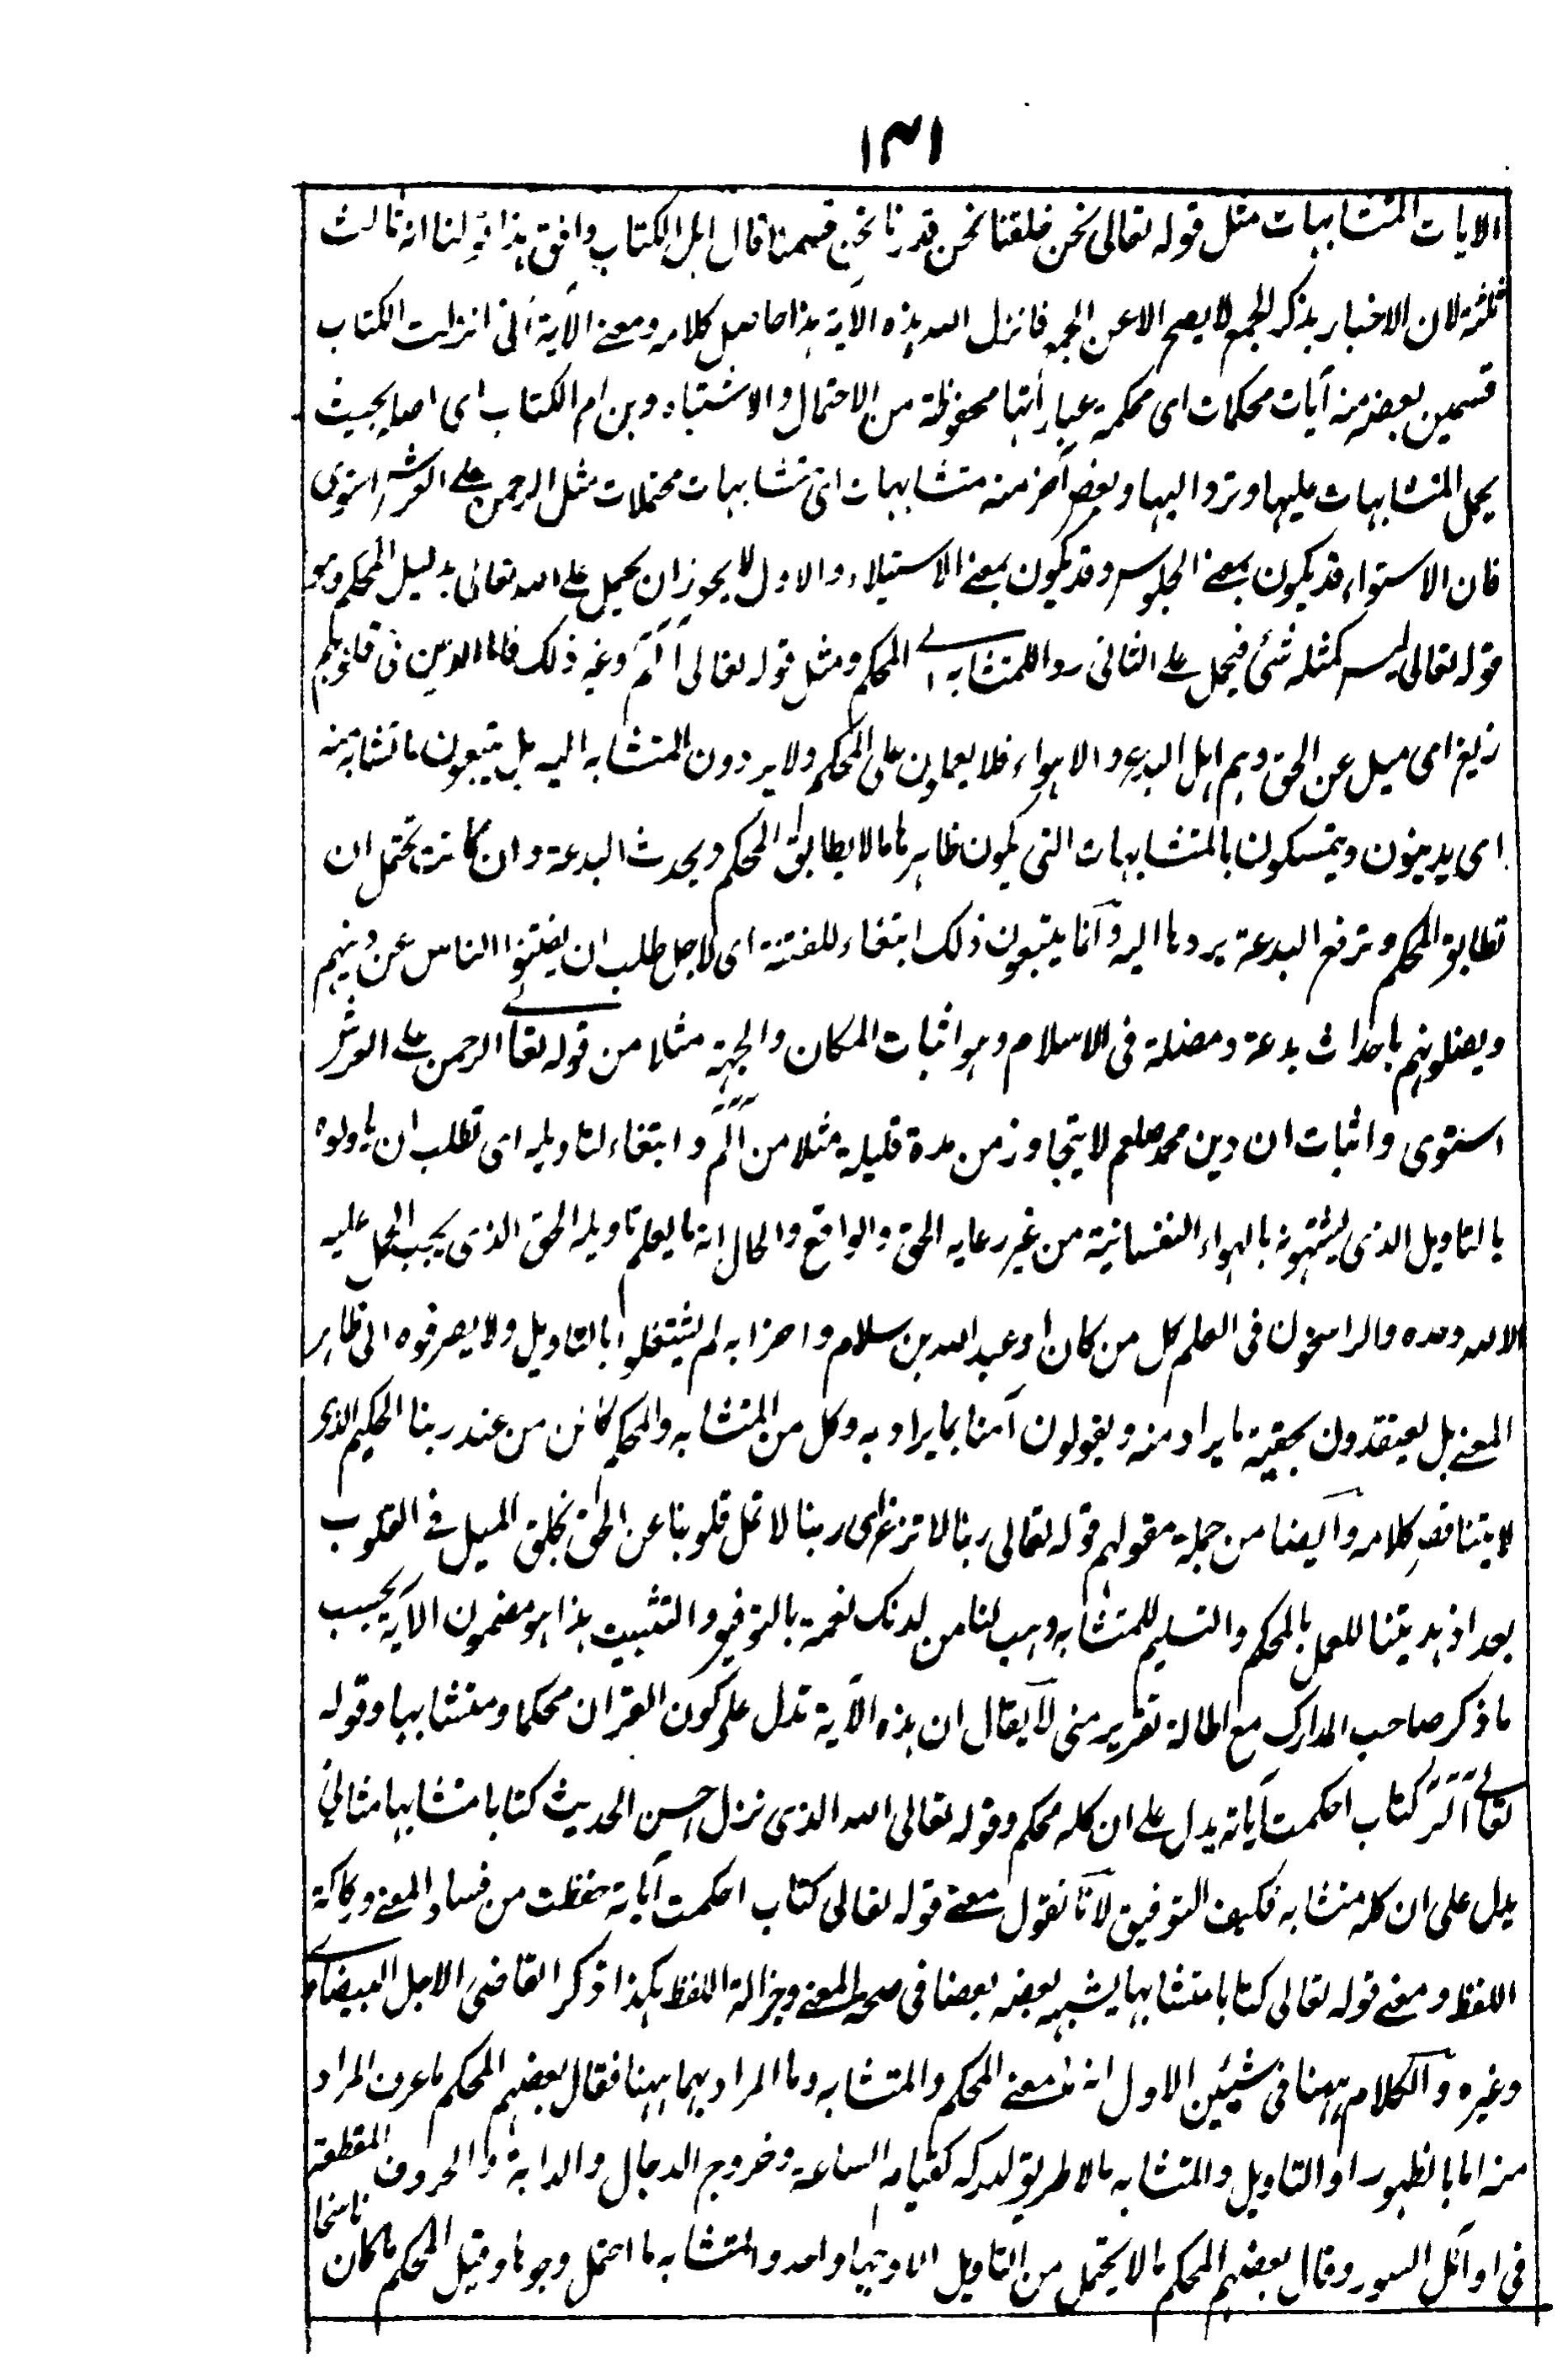 ١٣١
الايات المتشابهات مثل قوله تعالى نحن خلقنا نحن قدرنا نحن قسمنا قال اهل الكتاب وافق هذا قولنا انه ثالث
ثلثة لان الاخبار بذكر الجمع لا يصح الا عن الجمع فانزل الله هذه الآية هذا حاصل كلامه ومعنى الآية انى انزلت الكتاب
قسمين بعضه منه آيات محكمات اى محكمة عباراتها محفوظة من الاحتمال والاشتباه وهن ام الكتاب اى اصله بحيث
يحمل المتشابهات عليها وترد اليها وبعض آخر منه متشابهات اى متشابهات محتملات مثل الرحمن على العرش استوى
فان الاستواء قد يكون بمعنى الجلوس وقد يكون بمعنى الاستيلاء والاول لا يجوز ان يحمل على الله تعالى بدليل المحكم وهو
قوله تعالى ليس كمثله شئ فيحمل على الثانى ردا للمتشابه الى المحكم ومثل قوله تعالى الٓمٓ وغير ذلك فاما الذين فى قلوبهم
زيغ اى ميل عن الحق وهم اهل البدع والاهواء فلا يعملون على المحكم ولا يردون المتشابه اليه بل يتبعون ما تشابه منه
اى يدينون ويتمسكون بالمتشابهات التى يكون ظاهرها ما لا يطابق المحكم ويحدث البدعة وان كانت تحتمل ان
تطابق المحكم وترفع البدعة بردها اليه وانما يتبعون ذلك ابتغاء للفتنة اى لاجل طلب ان يفتنوا الناس عن دينهم
ويضلونهم باحداث بدعة ومضلة فى الاسلام وهو اثبات المكان والجهة مثلا من قوله تعالى الرحمن على العرش
استوى واثبات ان دين محمد صلعم لا يتجاوز من مدة قليلة مثلا من الٓمٓ وابتغاء لتاويله اى تطلب ان ياولوه
بالتاويل الذى يشتهونه بالهواء النفسانية من غير رعاية الحق والواقع والحال انه ما يعلم تاويله الحق الذى يجب الحمل عليه
الا الله وحده والراسخون فى العلم كل من كان او عبد الله بن سلام واحزابه لم يشتغلوا بالتاويل ولا يصرفوه الى ظاهر
المعنى بل يعتقدون بحقية ما يراد منه ويقولون آمنا بما يراد به وكل من المتشابه والمحكم كائن من عند ربنا الحكيم الذى
لا يتناقض كلامه وايضا من جملة مقولهم قوله تعالى ربنا لا تزغ اى ربنا لا تمل قلوبنا عن الحق بخلق الميل فى القلوب
بعد اذ هديتنا للعمل بالمحكم والتسليم للمتشابه وهب لنا من لدنك نعمة بالتوفيق والتثبيت هذا هو مضمون الآية بحسب
ما ذكر صاحب المدارك مع اطالة تقرير منى لا يقال ان هذه الآية تدل على كون القران محكما ومتشابها وقوله
تعالى الٓرٰ كتاب احكمت آياته يدل على ان كله محكم وقوله تعالى الله الذى نزل احسن الحديث كتابا متشابها مثانى
يدل على ان كله متشابه فكيف التوفيق لانا نقول معنى قوله تعالى كتاب احكمت آياته حفظت من فساد المعنى وركاكة
اللفظ ومعنى قوله تعالى كتابا متشابها يشبه بعضه بعضا فى صحة المعنى وجزالة اللفظ هكذا ذكر القاضى الاجل البيضاوى
وغيره والكلام ههنا فى شيئين الاول انه ما معنى المحكم والمتشابه وما المراد بهما ههنا فقال بعضهم المحكم ما عرف المراد
منه اما بالظهور او التاويل والمتشابه ما لا طريق لدركه كقيام الساعة وخروج الدجال والدابة والحروف المقطعة
فى اوائل السور وقال بعضهم المحكم ما لا يحتمل من التاويل الا وجها واحد والمتشابه ما احتمل وجوها وقيل المحكم ما كان ناسخا